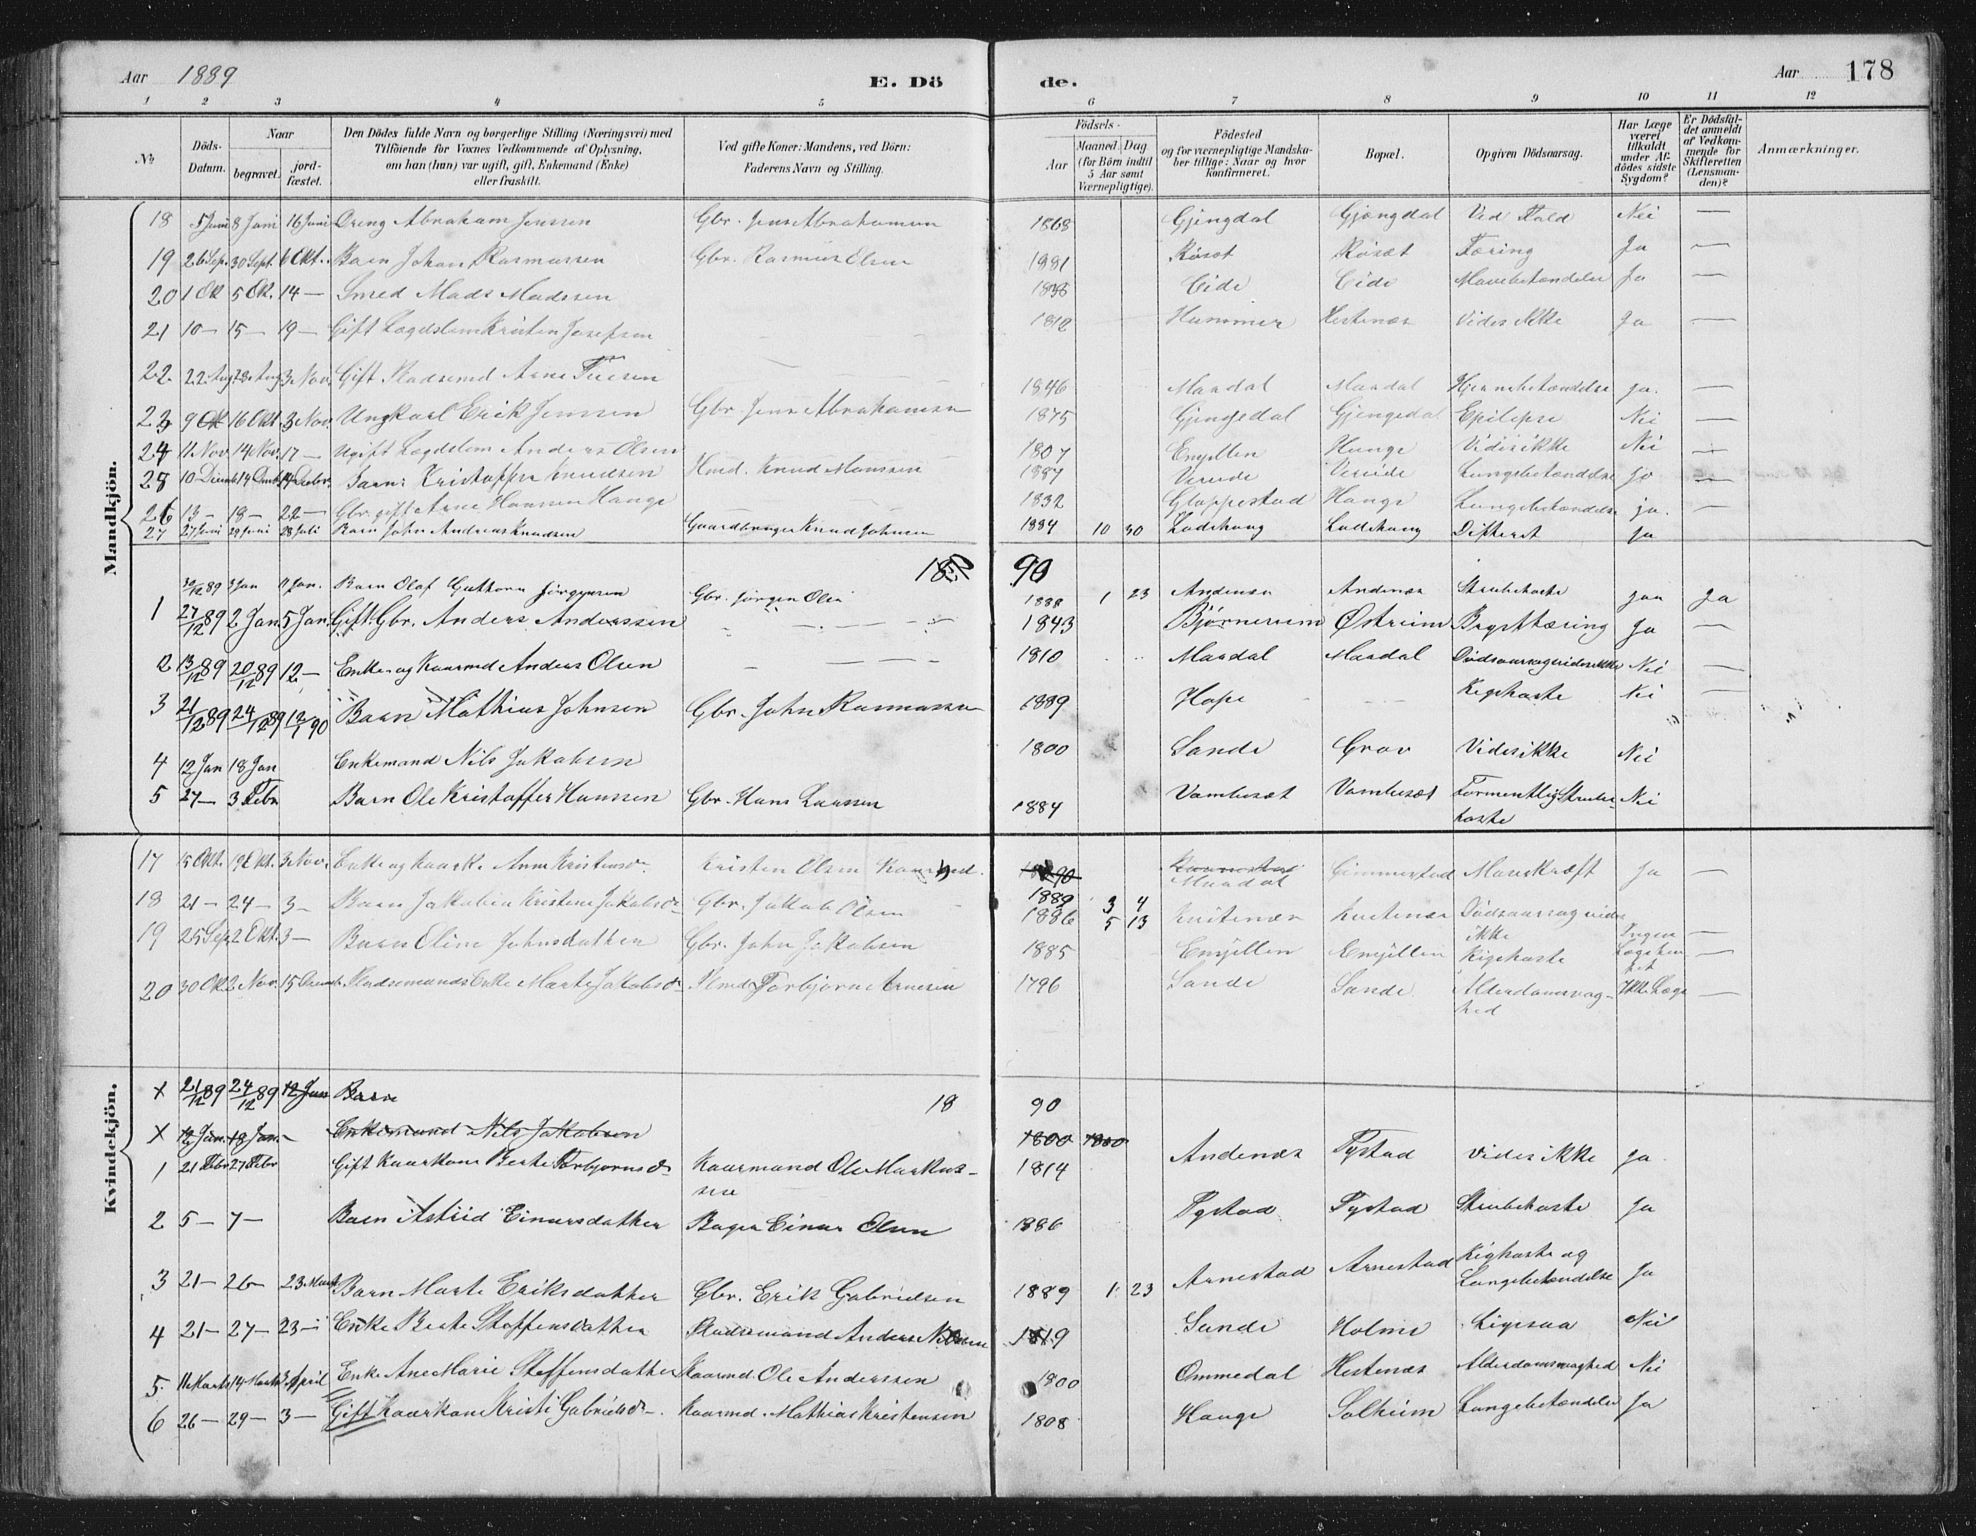 Aar 1889 E. Dö de. Aar 178
1 2 3 4 5 6 7 8 9 10 11 12
№ Döds-Datum. Naar begravet. jord-fæstet. Den Dödes fulde Navn og borgerlige Stilling (Næringsvei) med Tilföiende for Voxnes Vedkommende af Oplysning, om han (hun) var ugift, gift, Enkemand (Enke) eller fraskilt. Ved gifte Koner: Mandens, ved Börn: Faderens Navn og Stilling. Födsels- Aar Maaned Dag (for Börn indtil 5 Aar samt Værnepligtige). Födested og for værnepligtige Mandskaber tillige: Naar og hvor konfirmeret. Bopæl. Opgiven Dödsaarsag. Har Læge været tilkaldt under Afdödes sidste Sygdom? Er Dödsfaldet anmeldt af Vedkommende for Skifteretten (Lensmanden)? Anmærkninger.
Mandkjön.
18 5 Juni 8 Juni 16 Juni Dreng Abraham Jenssen Gbr. Jens Abrahamsen 1868 Gjengdal Gjengdal Ved Fald Nei —
19 26 Sep. 30 Sept. 6 Okt. Barn Johan Rasmussen Gbr. Rasmus Olsen 1881 Røsæt Røsæt Tæring Ja —
20 1 Ok 5 Ok. 14 — Smed Mads Madssen 1838 Eide Eide Mavebetændelse Ja —
21 10 — 15 — 19 — Gift Lægdslem Kristen Josefsen 1812 Hammer Hestenæs Vides ikke Ja —
22 22 Aug 28 Aug 3 Nov. Gift Pladsemd Arne 1846 Maadal Maadal Hjernebetændelse ja. —
23 9 Ok 16 Okt 3 Nov. Ungkarl Erik Jenssen Gbr. Jens Abrahamsen 1875 Gjengedal Gjengedal Epilepsi Nei —
24 11 Nov. 14 Nov. 17 — Ugift Lægdslem Anders Olsen 1807 Hauge Vides ikke Nei
25 Barn Kristoffer Knudsen Hmd. Knud Hanssen 1887 Vereide Vereide Lungebetændelse ja —
26 13 — 18 — 22 — Gbr. gift Arne Hansen Hauge 1832 Gloppestad Hauge Lungebetændelse ja. —
27 27 Juni 29 Juni 28 Juli Barn John Andreas Knudsen Gaardbruger Knud Johnsen 1884 10 30 Ladehaug Ladehaug Difterit Ja
18 90
30/12 89 3 Jan 11 Jan. Barn Olaf Guthorm Jørgensen Gbr. Jørgen Olsen 1888 1 23 Andenæs Andenæs Strubehoste jaa Ja
1 27/12 89 2 Jan 5 Jan. Gift Gbr. Anders Anderssen 1843 Bjørnereim Østreim Brysttæring Ja —
2 13/12 89 20/12 89 12 — Enke- og Kaarmd Anders Olsen 1810 Maadal Maadal Dødsaarsag vides ikke Nei —
3 21/12 89 24/12 89 12/1 90 Barn Mathias Johnsen Gbr. John Rasmussen 1889 Hope — Kighoste Nei —
4 12 Jan 18 Jan Enkemand Nils Jakobsen 1800 Sande Grov Vides ikke Nei
5 27 — 3 Febr Barn Ole Kristoffer Hanssen Gbr. Hans Larssen 1884 Vambesæt Vambesæt Formentlig Strube- Nei
hoste
Kvindekjön.
17 15 Okt. 19 Okt. 3 Nov. Enke og Kaark. Anne Kristensd. Kristen Olsen 1890 Maadal Gimmestad Marskræft Ja —
18 21 — 24 — 3 — Barn Jakobin Kristine Jakobsd. Gbr. Jakob Olsen 1889 3 4
1886 5 13 Dødsaarsag vides
19 25 Sep. 2 Okt. 3 — Barn Oline Johnsdatter Gbr. John Jakobsen ikke
1885 Kighoste Ingen —
20 30 Okt 2 Nov. 15 Pladsemands Enke Marte Jakobsd. Hmd Torbjørn Arnesen 1796 Sande Sande Alderdomssvag- Ikke Læge —
hed
X 21/12 89 24/12 89 12 Jan Barn 18 90
X 12 Jan. 18 Jan. — Enkemand Nils Jakobsen 1800 1800
1 21 Febr 27 Febr Gift Kaarkone Berte Torbjørnsd. Kaarmand Ole Markus- 1814 Andenæs Rystad Vides ikke Ja
sen
2 5 — 7 — Barn Astrid Einarsdatter Bager Einar Olsen 1886 Rystad Rystad Strubehoste Ja
3 21 — 26 — 23 Marts Barn Marte Eriksdatter Gbr. Erik Gabrielsen 1889 1 23 Arnestad Arnestad Kighoste og Lungebetændelse Ja
4 21 — 27 — 23 — Enke Berte Steffensdatter Pladsemand Anders Nilssen 1819 Sande Holme Nei
5 11 Marts 14 Marts 3 April Enke Ane Marie Steffensdatter Kaarmd. Ole Anderssen 1800 Ommedal Hestenæs Alderdomssvaghed Nei
6 26 — 29 — 3 — Gift Kaarkone Kristi Gabrielsd. Kaarmd. Mathias Kristensen 1808 Hauge Solheim Lungebetændelse Ja